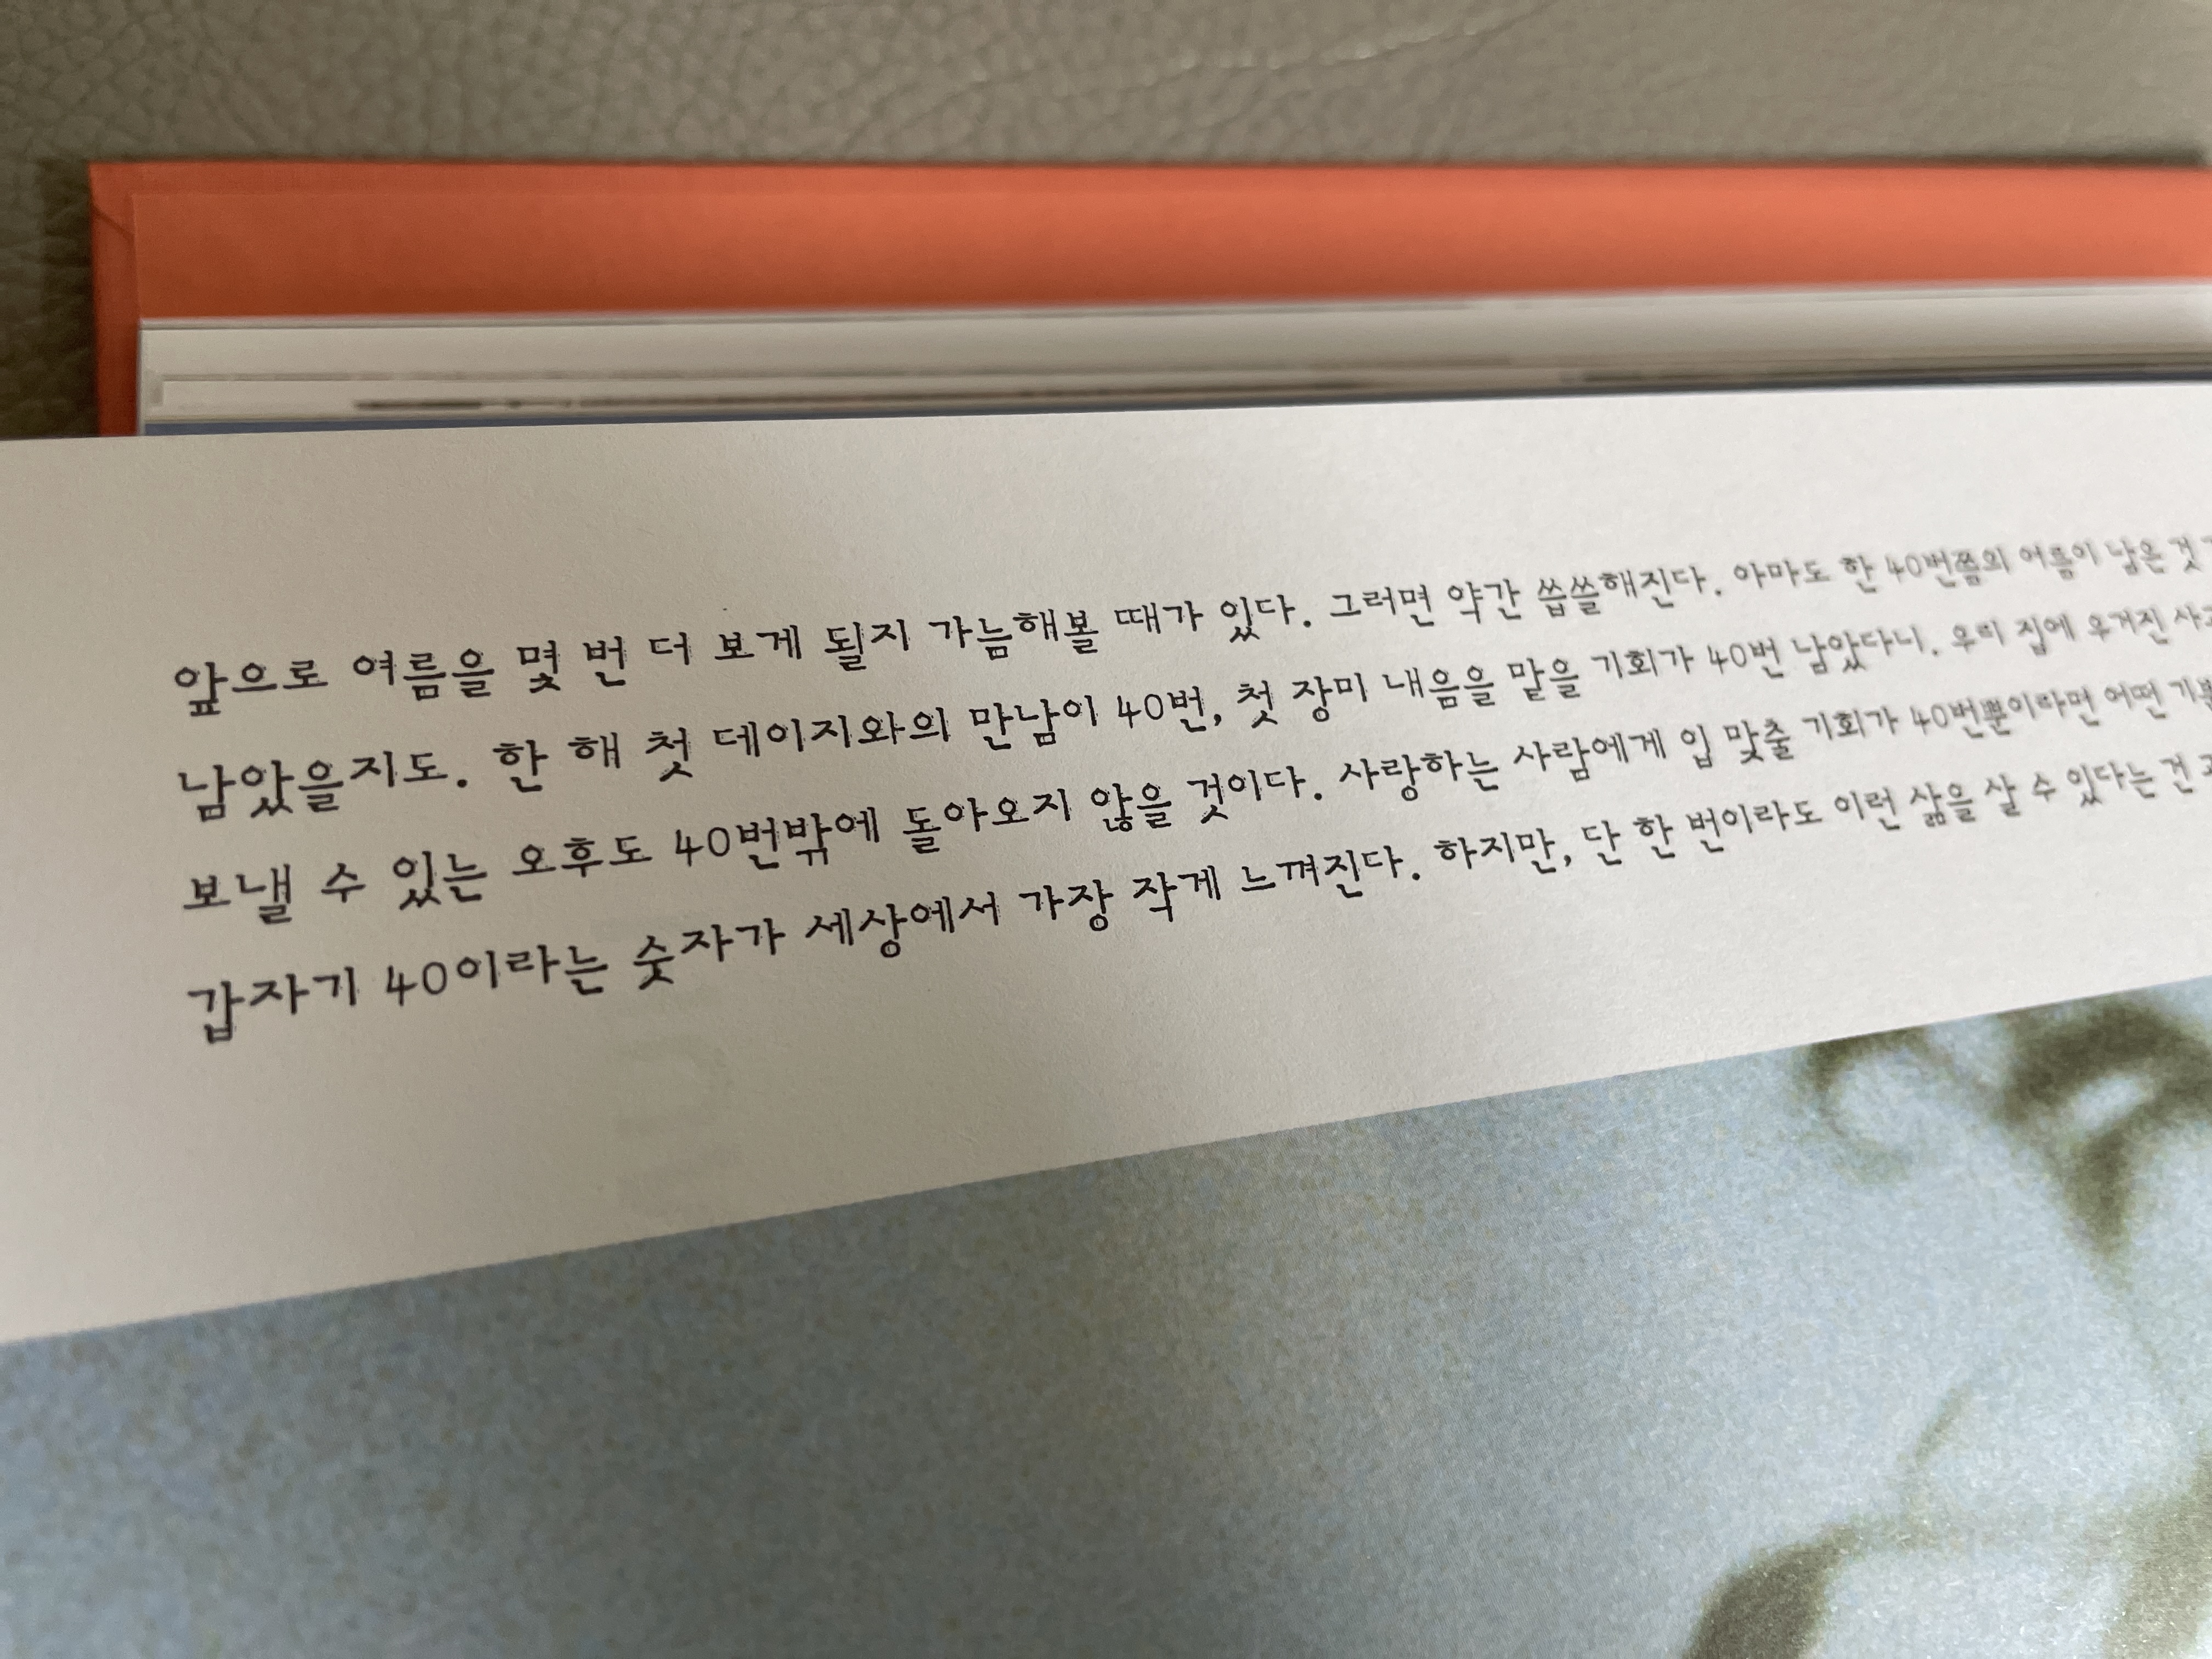 앞으로 여름을 몇 번 더 보게 될지 가늠해볼 때가 있다. 그러면 약간 씁쓸해진다. 아마도 한 40번쯤의 여름이 남은 것
남았을지도. 한 해 첫 데이지와의 만남이 40번, 첫 장미 내음을 맡을 기회가 40번 남았다니. 우리 집에 우거진
보낼 수 있는 오후도 40번밖에 돌아오지 않을 것이다. 사랑하는 사람에게 입 맞출 기회가 40번뿐이라면 어떤
갑자기 40이라는 숫자가 세상에서 가장 작게 느껴진다. 하지만, 단 한 번이라도 이런 삶을 살 수 있다는 건